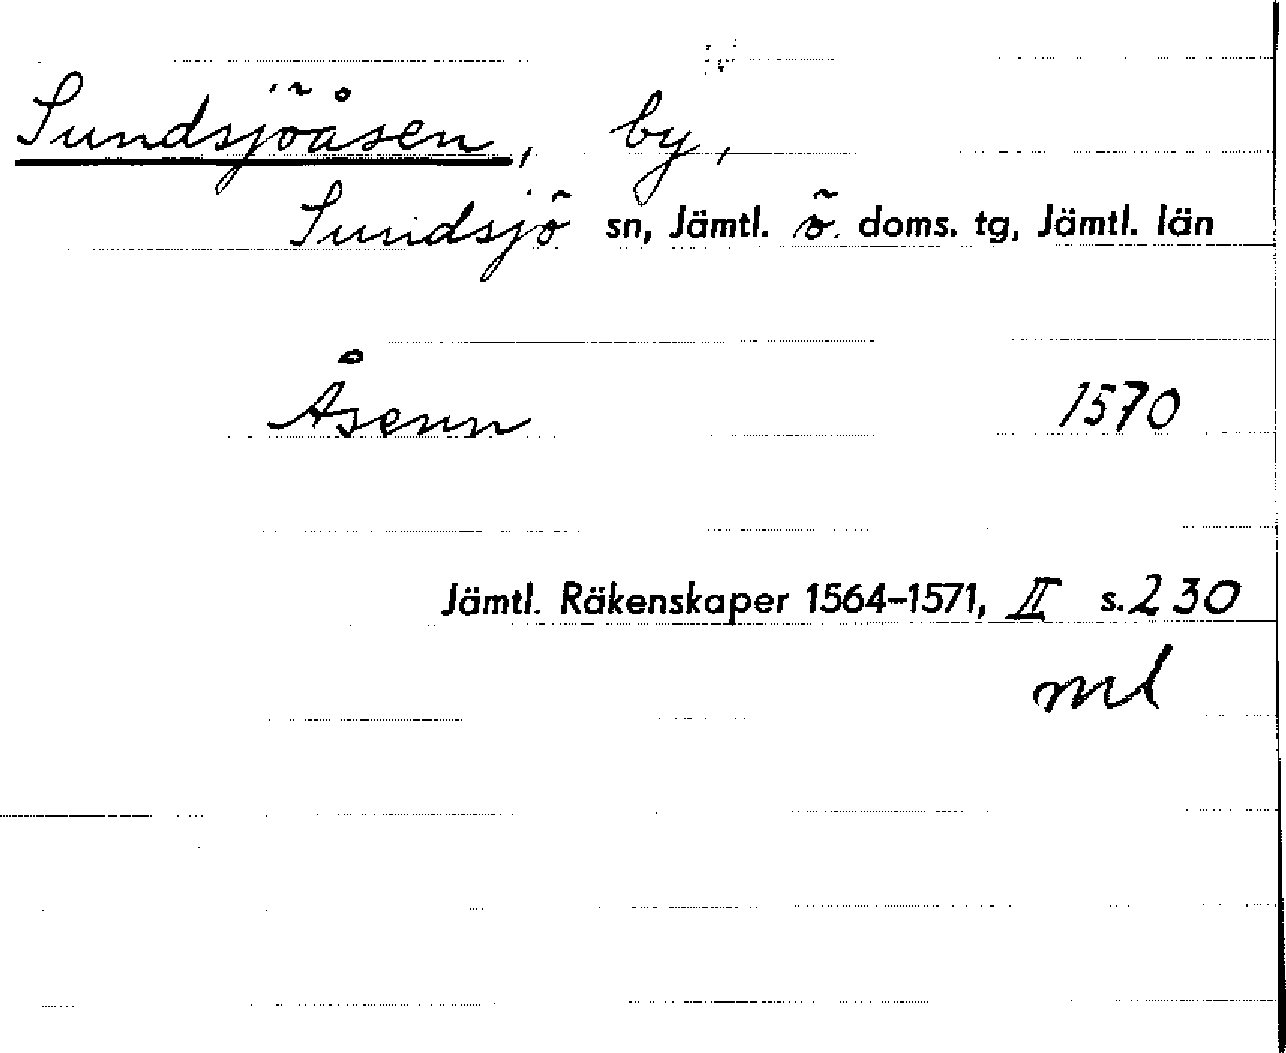 Sundsjöåsen, by,
Sundsjö sn, Jämtl. ö. doms. tg, Jämtl. län
Åsenn 1570
Jämtl. Räkenskaper 1564–1571, II s. 230
ml